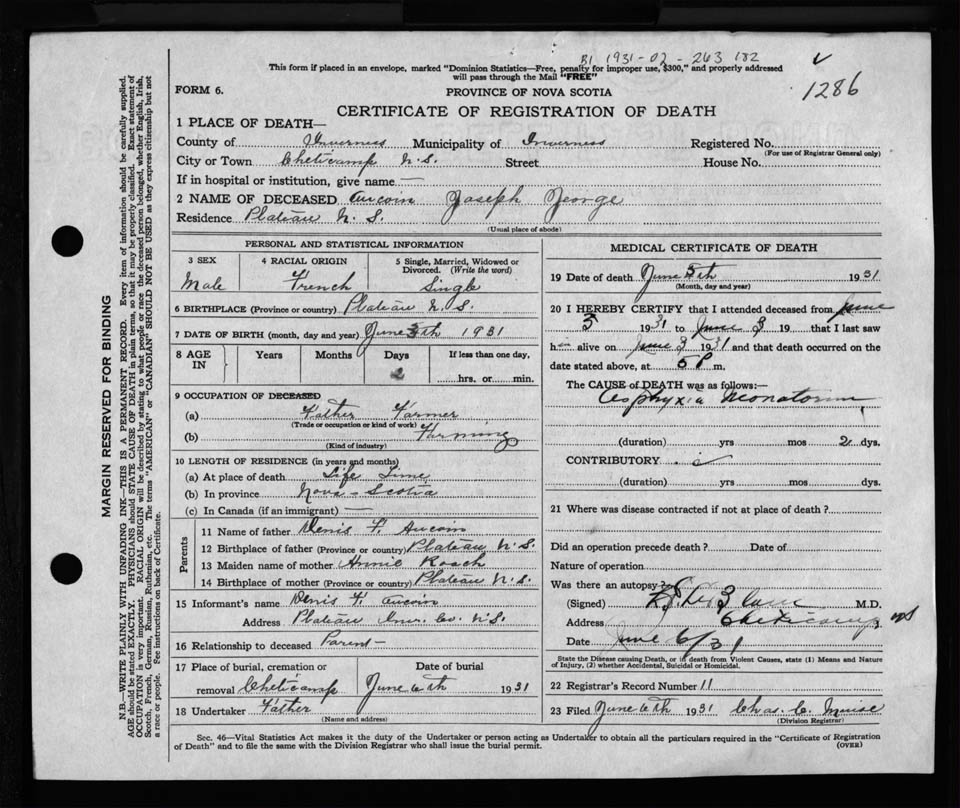 B1 1931-02-263 182
This form if placed in an envelope, marked "Dominion Statistics—Free, penalty for improper use, $300," and properly addressed
will pass through the Mail "FREE"
1286
FORM 6.
PROVINCE OF NOVA SCOTIA
CERTIFICATE OF REGISTRATION OF DEATH
1 PLACE OF DEATH—
County of Inverness Municipality of Inverness Registered No.
(For use of Registrar General only)
City or Town Cheticamp N.S. Street House No.
If in hospital or institution, give name —
2 NAME OF DECEASED Aucoin Joseph George
Residence Plateau N.S.
(Usual place of abode)
PERSONAL AND STATISTICAL INFORMATION
3 SEX 4 RACIAL ORIGIN 5 Single, Married, Widowed or
Divorced. (Write the word)
Male French Single
6 BIRTHPLACE (Province or country) Plateau N.S.
7 DATE OF BIRTH (month, day and year) June th 1931
8 AGE IN Years Months Days If less than one day,
2 hrs. or min.
9 OCCUPATION OF DECEASED
(a) Father Farmer
(Trade or occupation or kind of work)
(b) Farming
(Kind of industry)
10 LENGTH OF RESIDENCE (in years and months)
(a) At place of death Life Time
(b) In province Nova-Scotia
(c) In Canada (if an immigrant) —
Parents
11 Name of father Denis F. Aucoin
12 Birthplace of father (Province or country) Plateau N.S.
13 Maiden name of mother Annie Roach
14 Birthplace of mother (Province or country) Plateau N.S.
15 Informant's name Denis F. Aucoin
Address Plateau Inv. Co. N.S.
16 Relationship to deceased Parent
17 Place of burial, cremation or Date of burial
removal Cheticamp June 6th 1931
18 Undertaker Father
(Name and address)
MEDICAL CERTIFICATE OF DEATH
19 Date of death June 5th 1931
(Month, day and year)
20 I HEREBY CERTIFY that I attended deceased from June
3 1931 to June 3 19 that I last saw
h alive on June 3 1931 and that death occurred on the
date stated above, at 5 P m.
The CAUSE of DEATH was as follows:—
Asphyxia Neonatorum
(duration) yrs mos 2 dys.
CONTRIBUTORY
(duration) yrs mos dys.
21 Where was disease contracted if not at place of death?
Did an operation precede death? Date of
Nature of operation
Was there an autopsy?
(Signed) M.D.
Address Cheticamp NS
Date June 6/31
State the Disease causing Death, or in death from Violent Causes, state (1) Means and Nature
of Injury, (2) whether Accidental, Suicidal or Homicidal.
22 Registrar's Record Number 11
23 Filed June 6th 1931 Chas. C. Muise
(Division Registrar)
Sec. 46—Vital Statistics Act makes it the duty of the Undertaker or person acting as Undertaker to obtain all the particulars required in the "Certificate of Registration
of Death" and to file the same with the Division Registrar who shall issue the burial permit. (OVER)
MARGIN RESERVED FOR BINDING
N.B.—WRITE PLAINLY WITH UNFADING INK—THIS IS A PERMANENT RECORD. Every item of information should be carefully supplied.
AGE should be stated EXACTLY. PHYSICIANS should STATE CAUSE OF DEATH in plain terms, so that it may be properly classified. Exact statement of
OCCUPATION is very important. RACIAL ORIGIN will be described by stating to what people or race the deceased person belonged, whether English, Irish,
Scotch, French, German, Russian, Ruthenian, etc. The terms "AMERICAN" or "CANADIAN" SHOULD NOT BE USED as they express citizenship but not
a race or people. See instructions on back of Certificate.